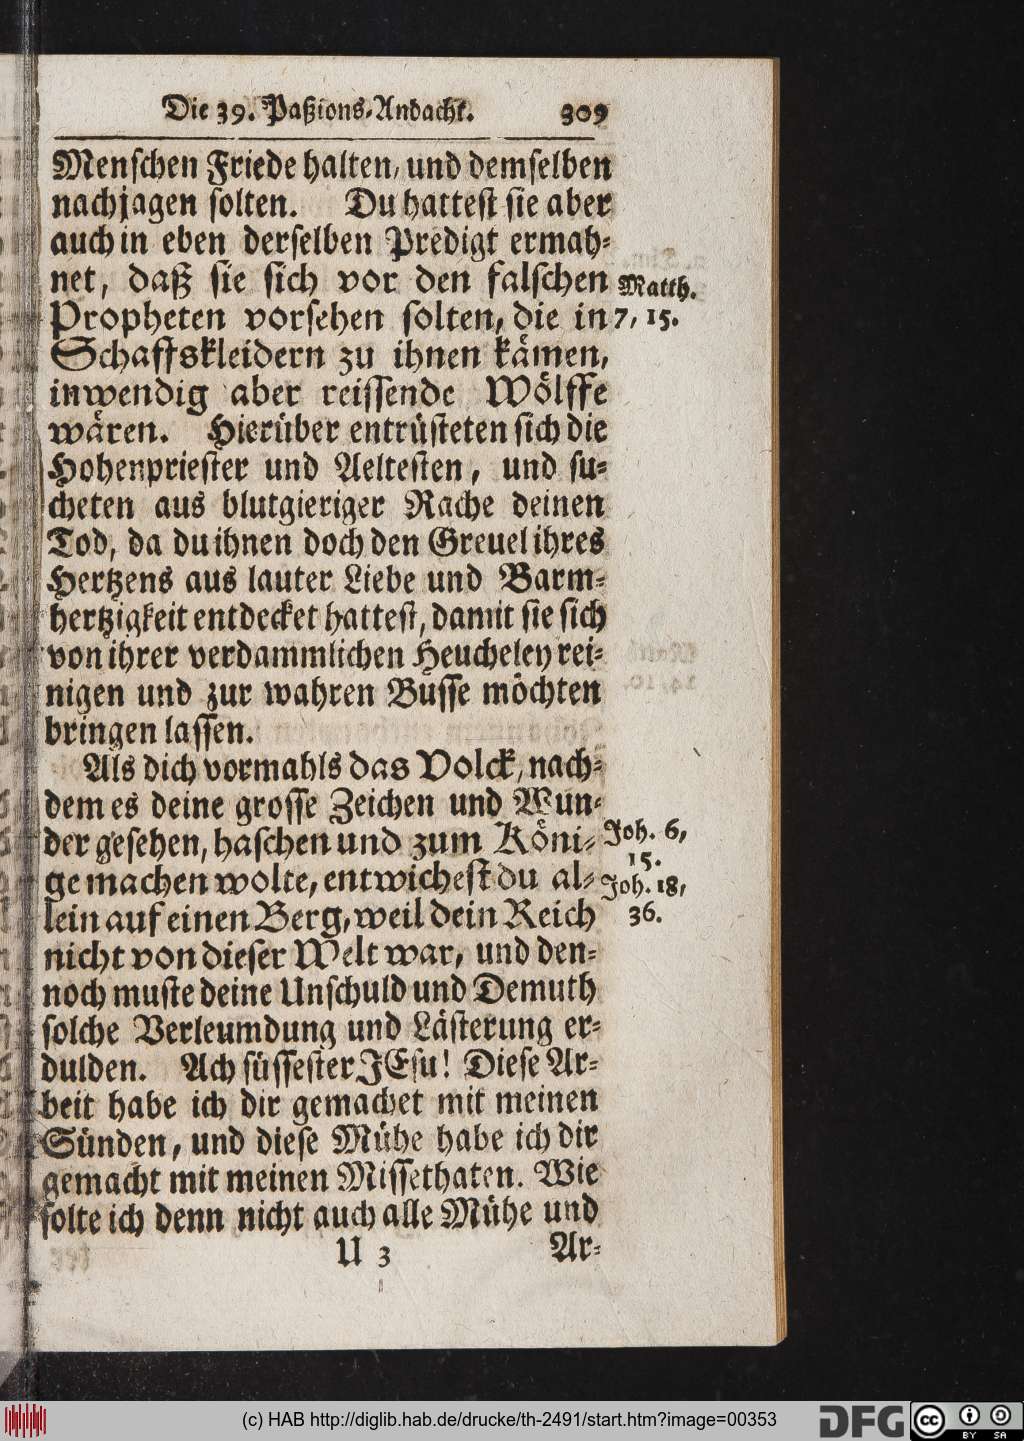 Die 39. Paßions-Andacht. 309
Menschen Friede halten, und demselben
nachjagen solten. Du hattest sie aber
auch in eben derselben Predigt ermah-
net, daß sie sich vor den falschen
Matth.
Propheten vorsehen solten, die in
7, 15.
Schaffskleidern zu ihnen kämen,
inwendig aber reissende Wölffe
wären. Hierüber entrüsteten sich die
Hohenpriester und Aeltesten, und su-
cheten aus blutgieriger Rache deinen
Tod, da du ihnen doch den Greuel ihres
Hertzens aus lauter Liebe und Barm-
hertzigkeit entdecket hattest, damit sie sich
von ihrer verdammlichen Heucheley rei-
nigen und zur wahren Busse möchten
bringen lassen.
Als dich vormahls das Volck, nach-
dem es deine grosse Zeichen und Wun-
der gesehen, haschen und zum Köni-
Joh. 6,
15.
ge machen wolte, entwichest du al-
Joh. 18,
lein auf einen Berg, weil dein Reich
36.
nicht von dieser Welt war, und den-
noch muste deine Unschuld und Demuth
solche Verleumdung und Lästerung er-
dulden. Ach süssester JEsu! Diese Ar-
beit habe ich dir gemachet mit meinen
Sünden, und diese Mühe habe ich dir
gemacht mit meinen Missethaten. Wie
solte ich denn nicht auch alle Mühe und
U 3 Ar-
(c) HAB http://diglib.hab.de/drucke/th-2491/start.htm?image=00353
DFG
cc BY SA